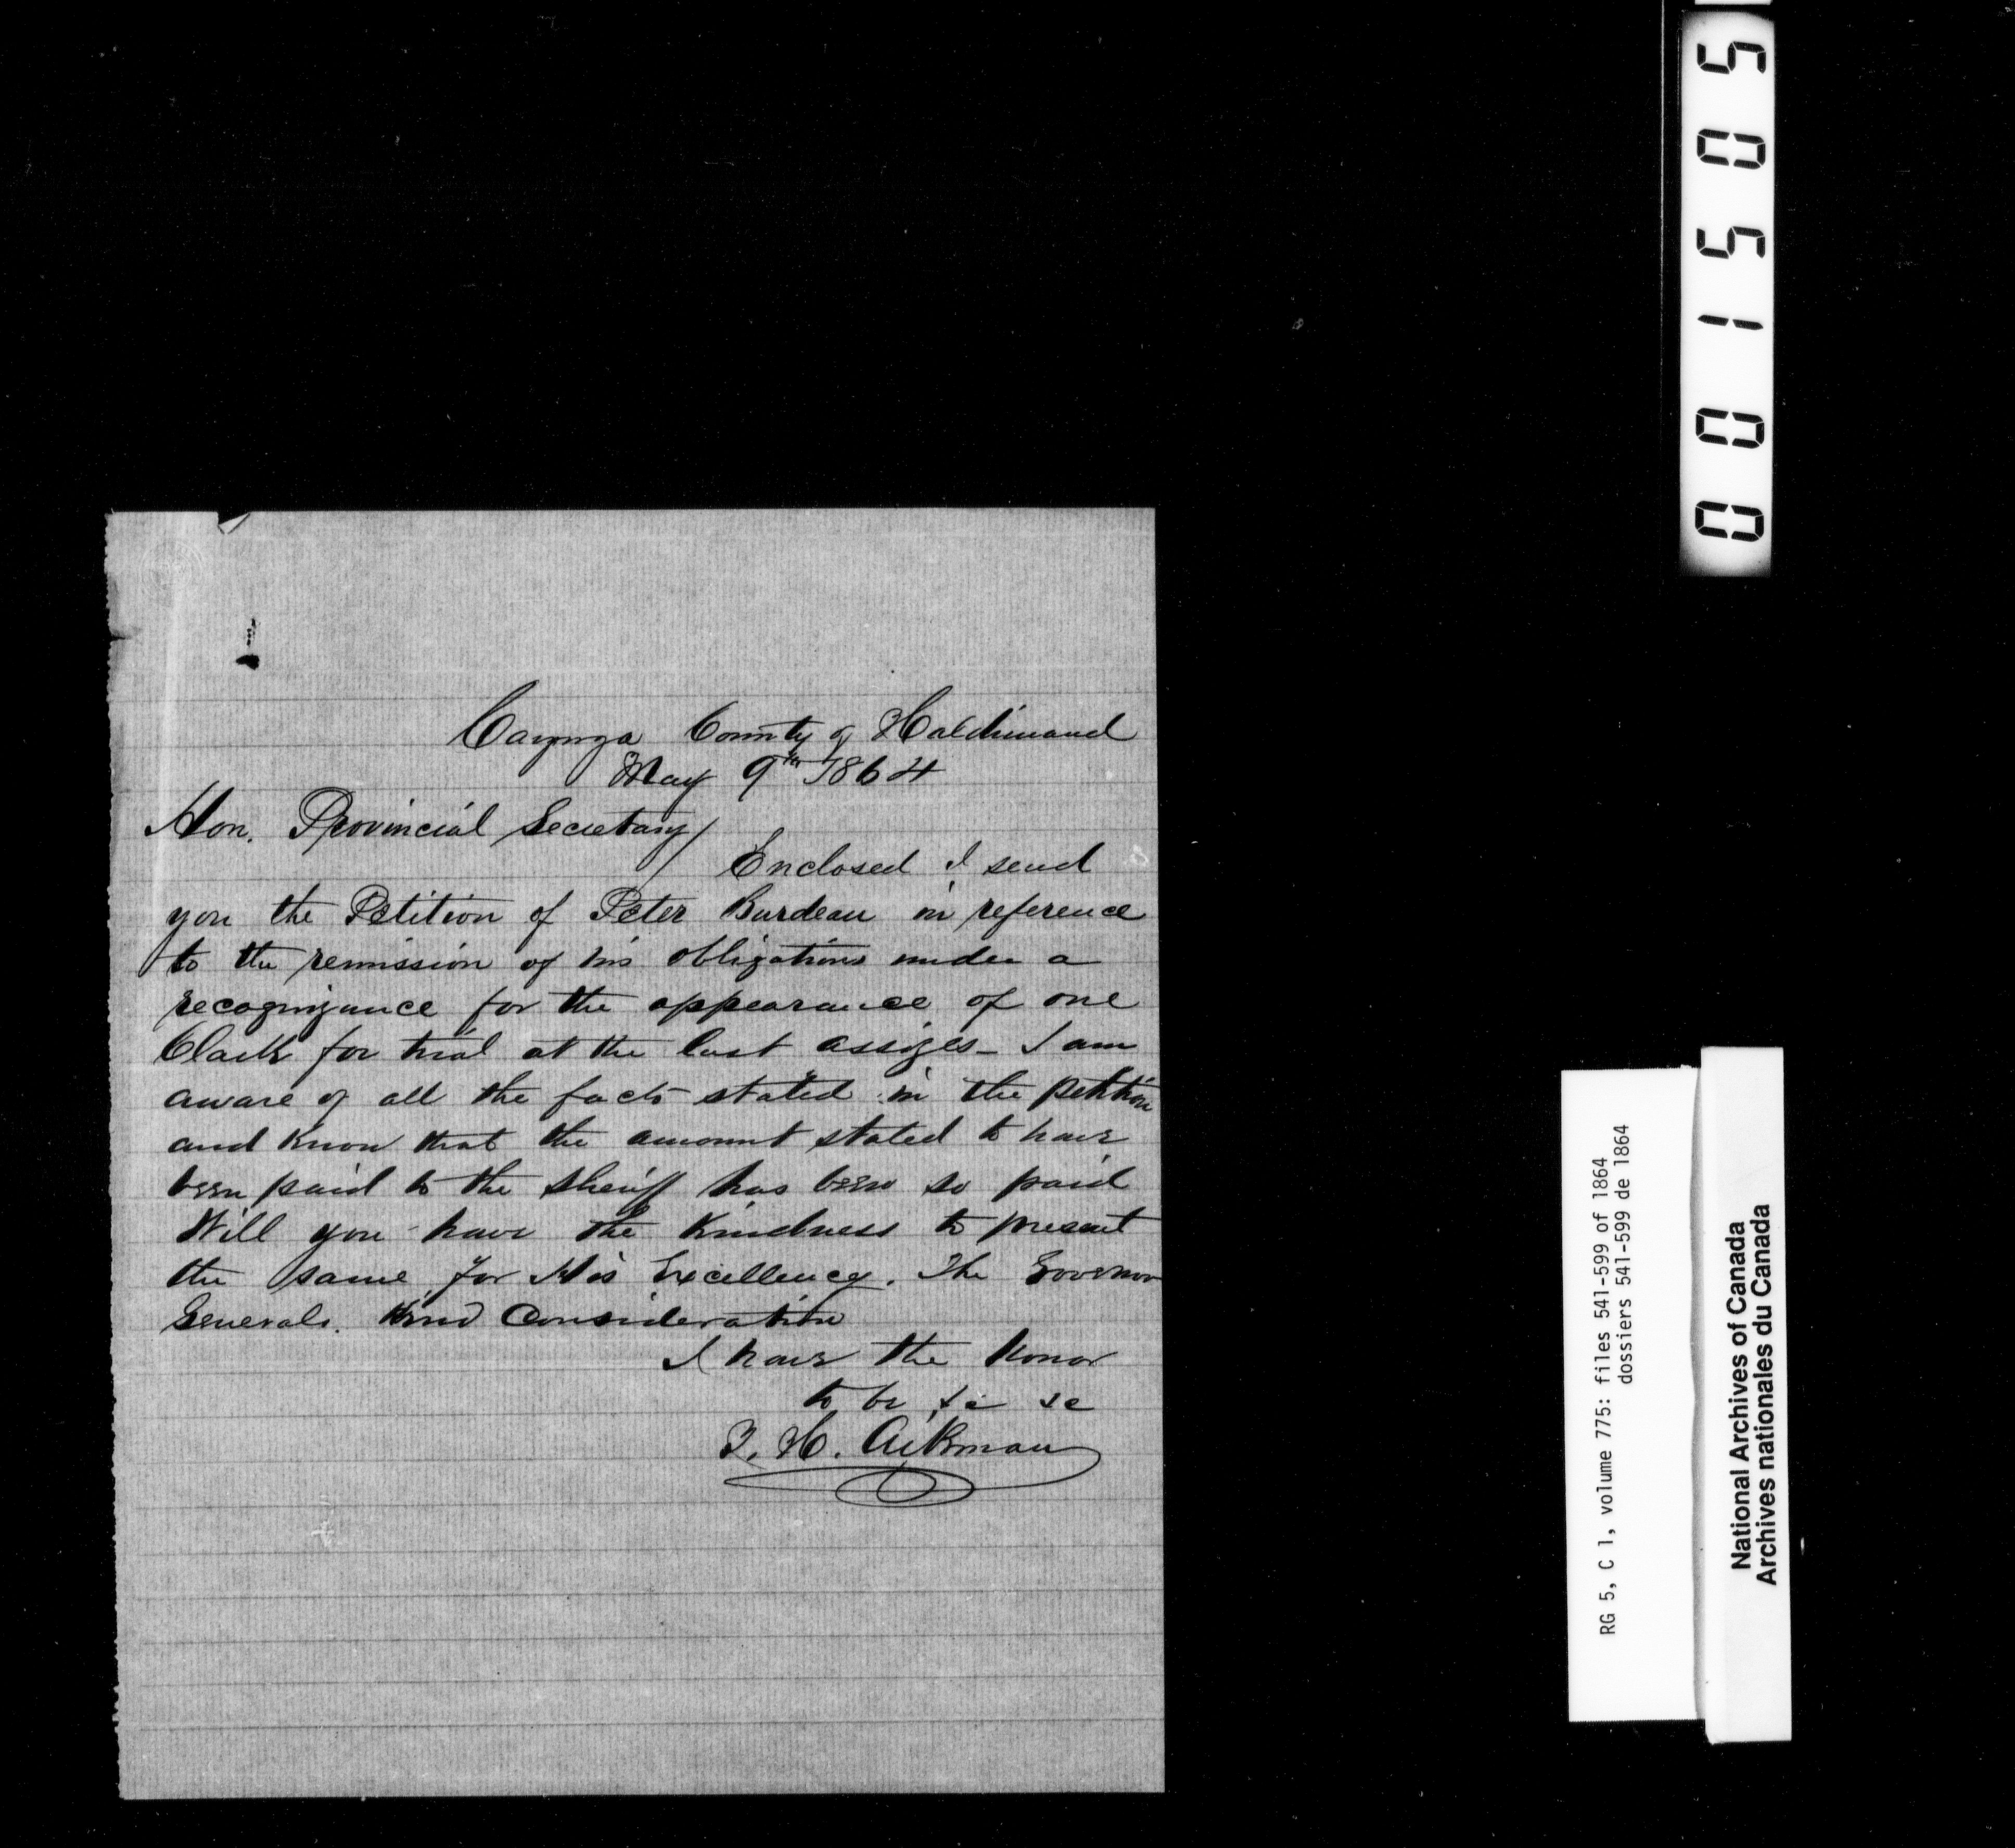 Cayuga County of Haldimand
May 9th 1864
Hon. Provincial Secretary/
Enclosed I send
you the Petition of Peter Burdeau in reference
to the remission of his obligations under a
recognizance for the appearance of one
Clark for trial at the last assizes - I am
aware of all the facts stated in the petition
and know that the amount stated to have
been paid to the Sheriff has been so paid
Will you have the kindness to present
the same for His Excellency. The Governor
Generals. kind consideration
I have the honor
to be &c &c
T. H. Aikman
001505
RG 5, C 1, volume 775: files 541-599 of 1864
dossiers 541-599 de 1864
National Archives of Canada
Archives nationales du Canada